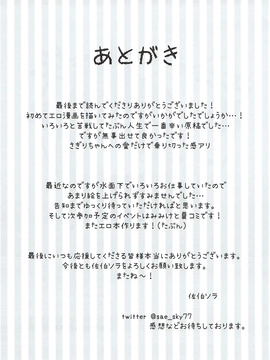 あとがき
最後まで読んでくださりありがとうございました！
初めてエロ漫画を描いてみたのですがいかがでしたでしょうか…！
いろいろと苦戦してたぶん人生で一番辛い原稿でした…
ですが無事出せて良かったです！
さぎりちゃんへの愛だけで乗り切った感アリ
最近なのですが水面下でいろいろお仕事していたので
あまり絵を上げられずすみませんでした…
告知までゆっくり待っていただければと思います。
そして次参加予定のイベントはみみけと夏コミです！
またエロ本作ります！(たぶん)
最後にいつも応援してくださる皆様本当にありがとうございます。
今後とも佐伯ソラをよろしくお願い致します。
またね〜！
佐伯ソラ
twitter @sae_sky77
感想などお待ちしております。